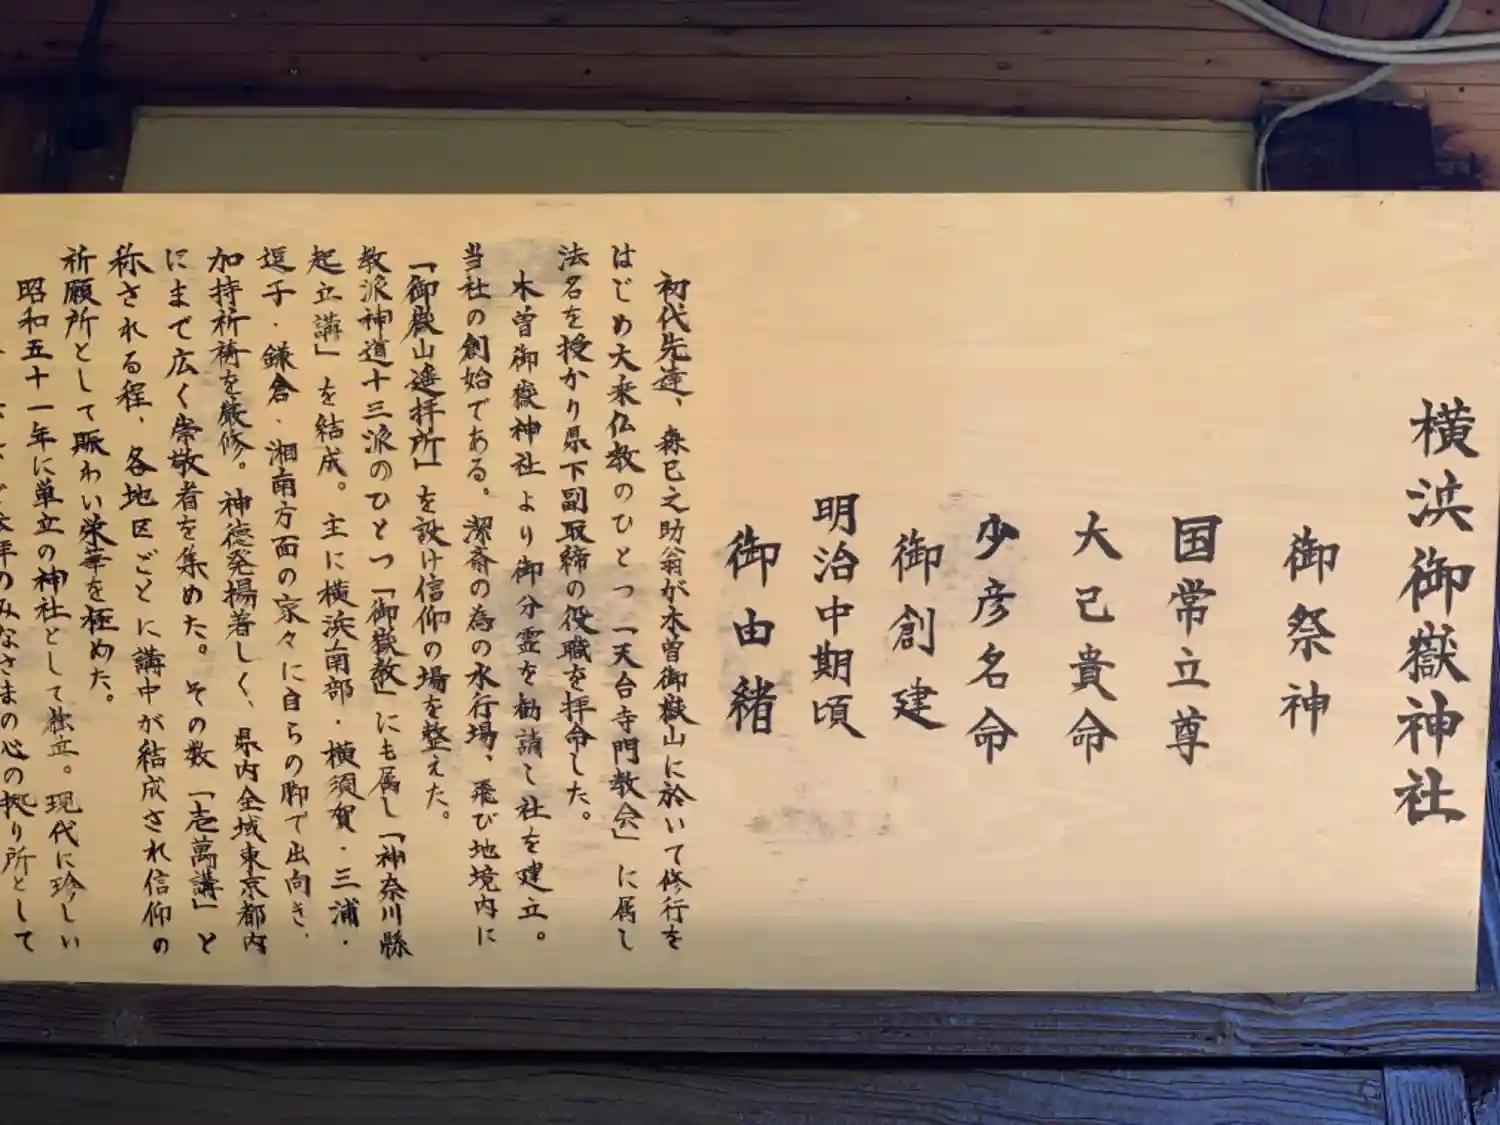 横浜御嶽神社
御祭神
国常立尊
大己貴命
少彦名命
御創建
明治中期頃
御由緒
初代先達、森巳之助翁が木曽御嶽山に於いて修行を
はじめ大乗仏教のひとつ「天台寺門教会」に属し
法名を授かり県下副取締の役職を拝命した。
木曽御嶽神社より御分霊を勧請し社を建立。
当社の創始である。潔斎の為の水行場、飛び地境内に
「御嶽山遙拝所」を設け信仰の場を整えた。
教派神道十三派のひとつ「御嶽教」にも属し「神奈川縣
起立講」を結成。主に横浜南部・横須賀・三浦・
逗子・鎌倉、湘南方面の家々に自らの脚で出向き、
加持祈祷を厳修。神徳発揚著しく、県内全域東京都内
にまで広く崇敬者を集めた。その数「壱萬講」と
称される程、各地区ごとに講中が結成され信仰の
祈願所として賑わい栄華を極めた。
昭和五十一年に単立の神社として独立。現代に珍しい
年のみなさまの心の拠り所として